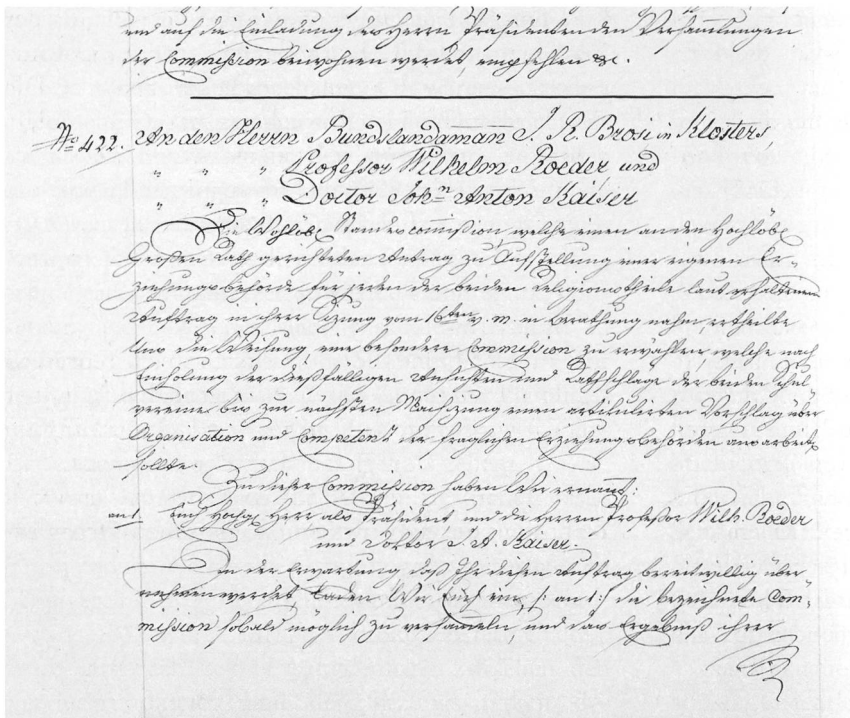 und auf die Einladung des Herrn Präsidenten den Versammlungen
der Commission beiwohnen werdet, empfehlen &c.
No 422. An den Herrn Bundslandamann J. R. Brosi in Klosters,
" " " Professor Wilhelm Roeder und
" " " Doctor John Anton Kaiser
Die Wohllöbl. Standescommission, welche einen an den Hochlöbl.
Großen Rath gerichteten Antrag zu Aufstellung einer eigenen Er-
ziehungsbehörde für jeden der beiden Religionstheile laut erhaltenem
Auftrag in ihrer Sizung vom 16ten v. m. in Berathung nahm, ertheilte
Uns die Weisung eine besondere Commission zu erwählen welche nach
Einholung der dießfälligen Ansichten und Rathschläge der beiden Schul-
vereine bis zur nächsten Maisizung einen artikulirten Vorschlag über
Organisation und Competenz der fraglichen Erziehungsbehörden ausarbeiten
sollte.
Zu dieser Commission haben Wir ernannt:
an 1. Euch Hochg. Herr als Präsident und die Herren Professor Wilh. Roeder
und Doktor J. A. Kaiser.
In der Erwartung daß Ihr diesen Auftrag bereitwillig über-
nehmen werdet laden Wir Euch ein, /: an 1 :/ die bezeichnete Com-
mission sobald möglich zu versameln, und das Ergebniß ihrer